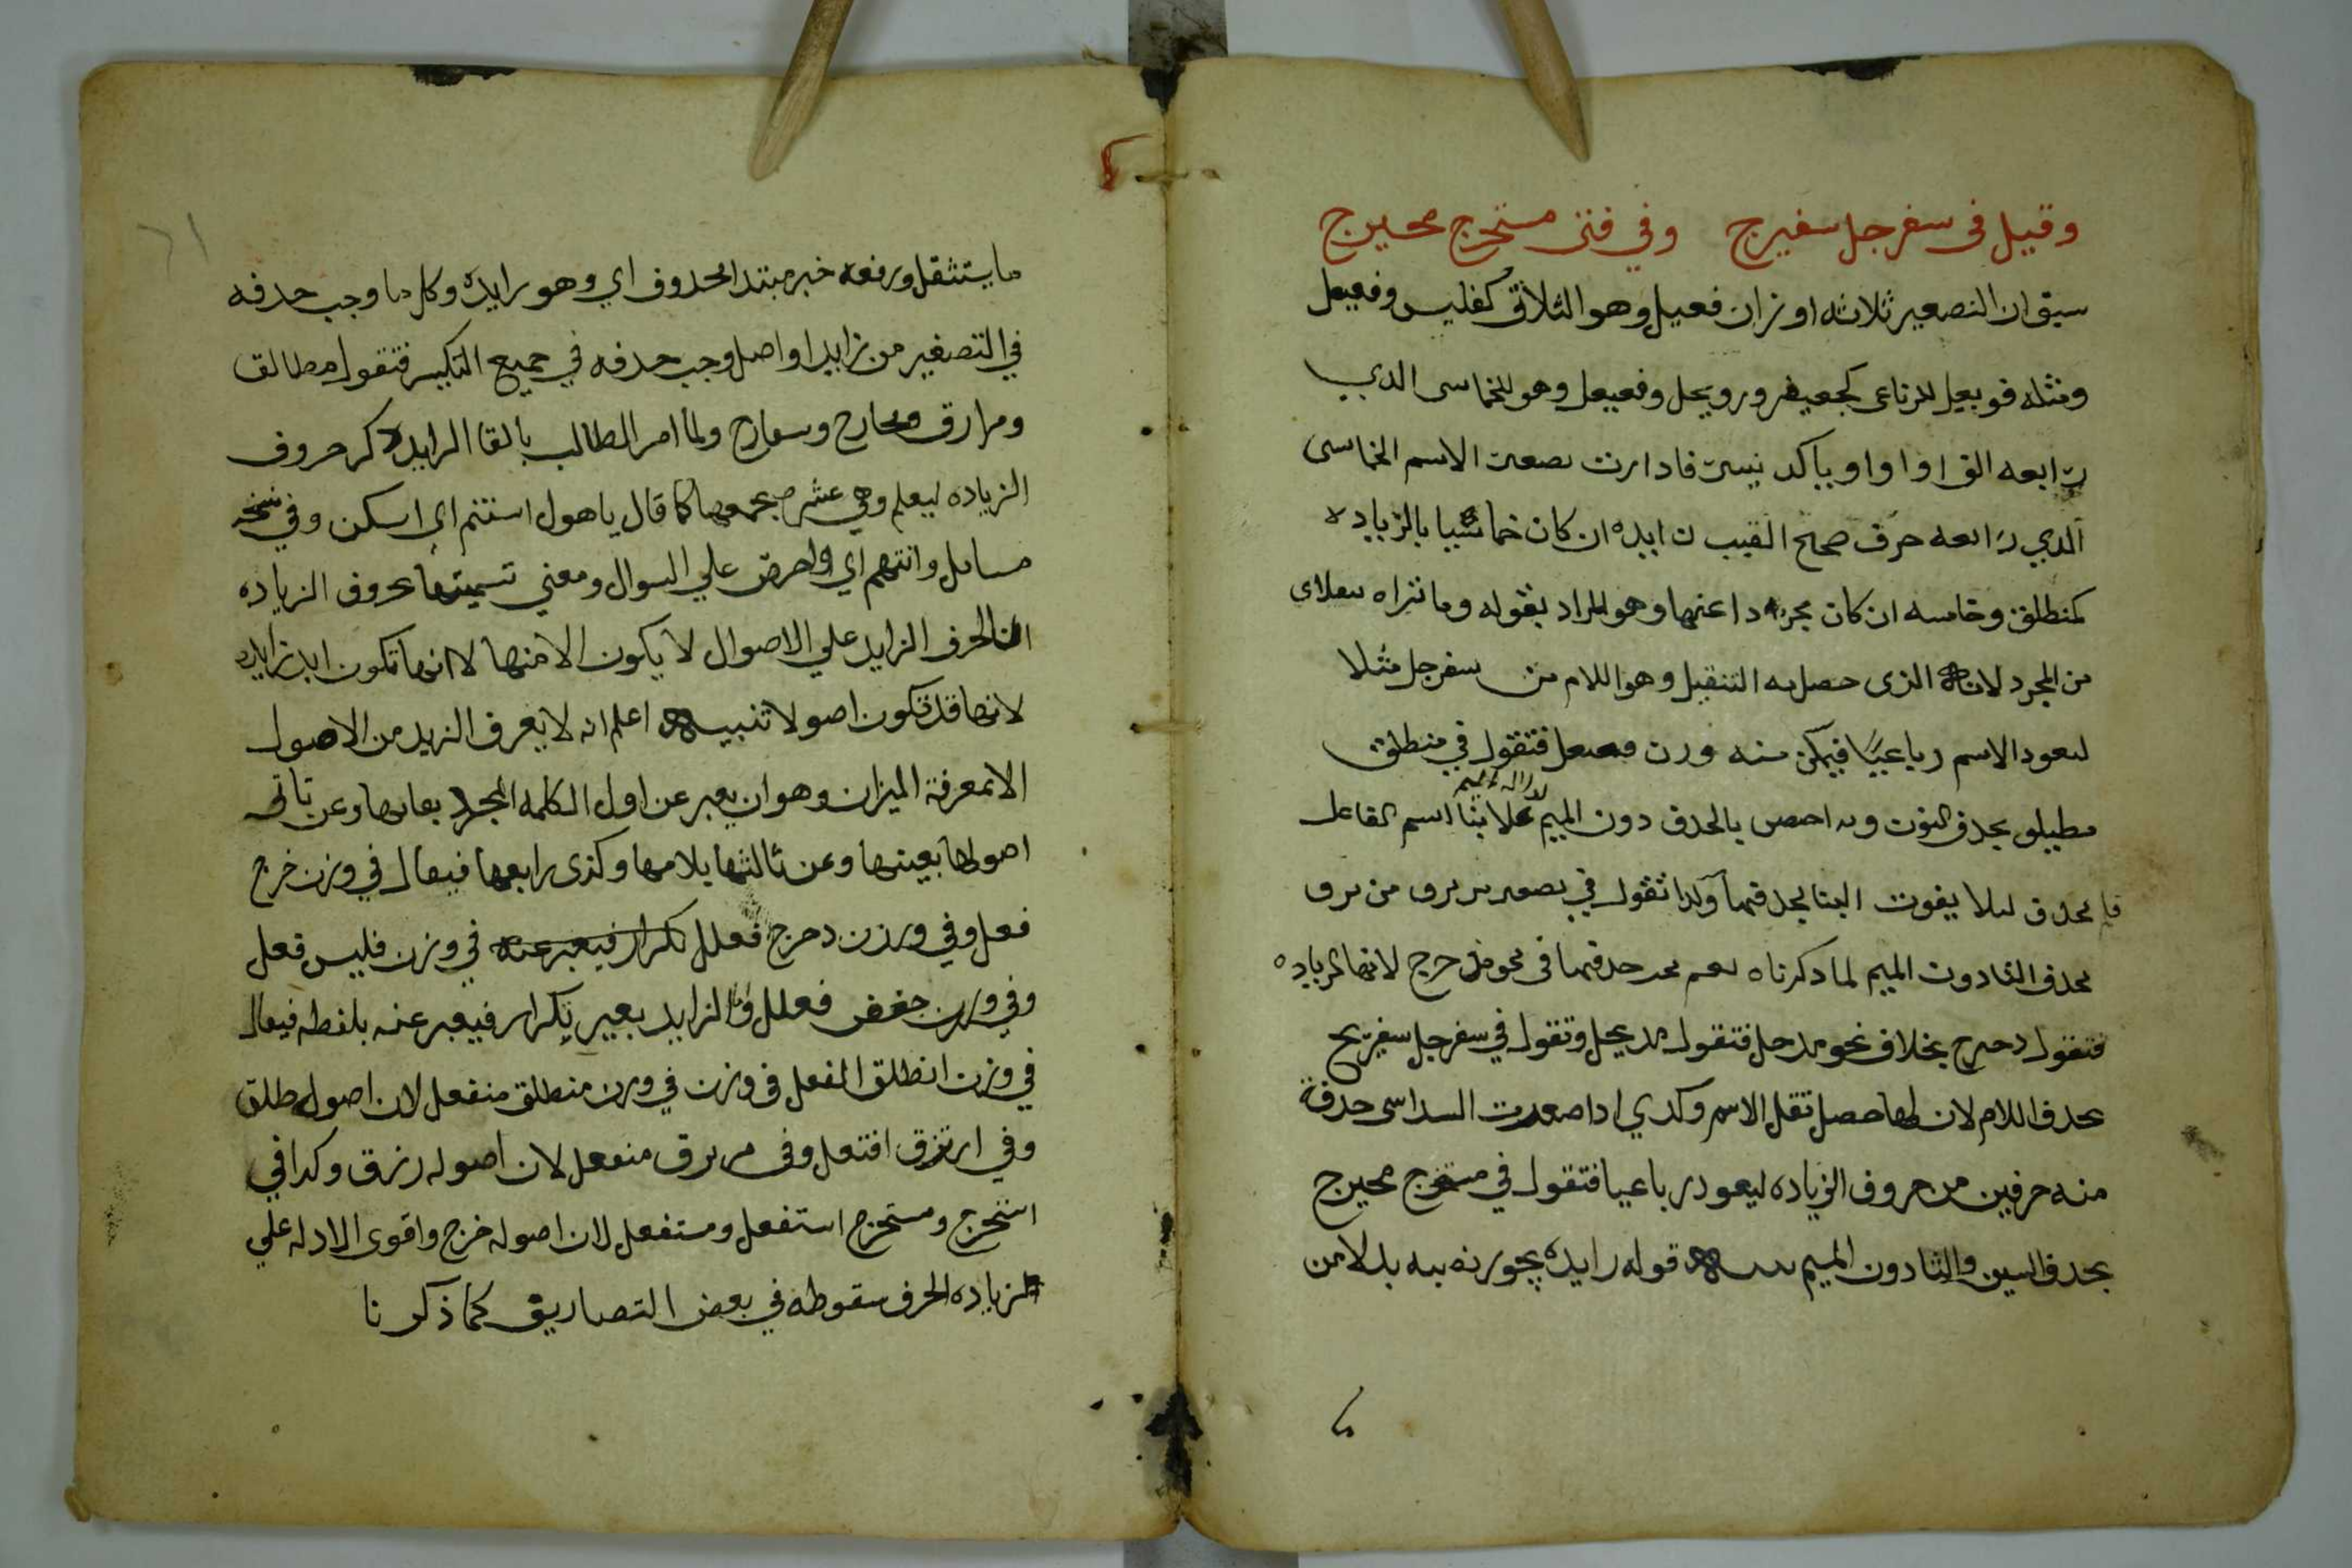 وقيل فى سفرجل سفيرج وفي فتى مستخرج مخيرج
سبق ان التصغير ثلاثه اوزان فعيل وهو الثلاثى كفليس وفعيعل
ومثله فويعل للرباعى كجعيفر ورويحل وفعيعل وهو للخماسى الدي
رابعه الف او واو او يا كدنيسير فادا ردت تصعير الاسم الخماسى
الدي رابعه حرف صحيح القيت زايده ان كان خماسيا بالزياده
كمنطلق وخامسه ان كان مجردا عنها وهو المراد بقوله وما تراه
من المجرد لانه الذى حصل به التثقيل وهو اللام من سفرجل مثلا
ليعود الاسم رباعيا فيمكن منه وزن فعيعل فتقول في منطلق
مطيلق بحدف النون وبه احصص بالحدف دون الميم بنا اسم الفاعل
فلم تحدف ليلا يفوت البنا بحدفها وكدا تقول في تصعير
بحدف التا دون الميم لما دكرناه نعم يجب حدفها فى نحو مدحرج لانها الزياده
فتقول دحيرج بخلاف نحو مدحل فتقول مديحل وتقول في سفرجل سفيرج
بحدف اللام لان بها حصل ثقل الاسم وكدي ادا صعرت السداسى حدفة
منه حرفين من حروف الزياده ليعود رباعيا فتقول في مستخرج مخيرج
بحدف السين والتا دون الميم تنبيه قوله زايده يجوز نصبه بدلا من
ما يستثقل ورفعه خبر مبتدا محدوف اي وهو زايده وكل ما وجب حدفه
في التصغير من زايد او اصل وجب حدفه في جميع التكسير فتقول مطالق
ومرازق ومخارج وسفارج ولما امر الطالب بالقا الزايد دكر حروف
الزياده ليعلم وهي عشر يجمعها كما قال يا هول استنم اي اسكن وفي نسخه
مسايل وانتهم اي واحرص علي السوال ومعني تسميتها بحروف الزياده
ان الحرف الزايد علي الاصول لا يكون الا منها لا انها تكون ابدا زايده
لانها قد تكون اصولا تنبيه اعلم انه لا يعرف الزيد من الاصول
الا بمعرفة الميزان وهو ان يعبر عن اول الكلمه المجرد بفايها وعن ثاني
اصولها بعينها وعن ثالثها بلامها وكذى رابعها فيقال في وزن خرج
فعل وفي وزن دحرج فعلل بكرار فيعبر عنه في وزن فليس فعل
وفي وزن جعفر فعلل واما الزايد بغير تكرار فيعبر عنه بلفظه فيقال
في وزن انطلق انفعل فى وزن في وزن منطلق منفعل لان اصوله طلق
وفي ارتزق افتعل وفى مرتزق منفعل لان اصوله رزق وكدا في
استخرج ومستخرج استفعل ومستفعل لان اصوله خرج واقوى الادله علي
زياده الحرف سقوطه في بعض التصاريف كما ذكرنا